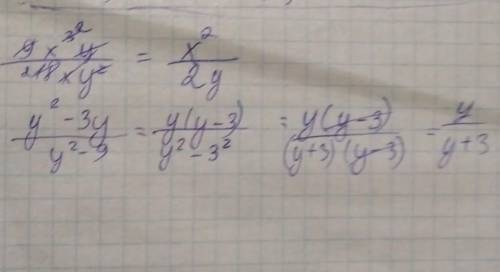 9x³y / 18xy² = x² / 2y
y² - 3y / y² - 9 = y(y-3) / y² - 3² = y(y-3) / (y+3)(y-3) = y / y+3